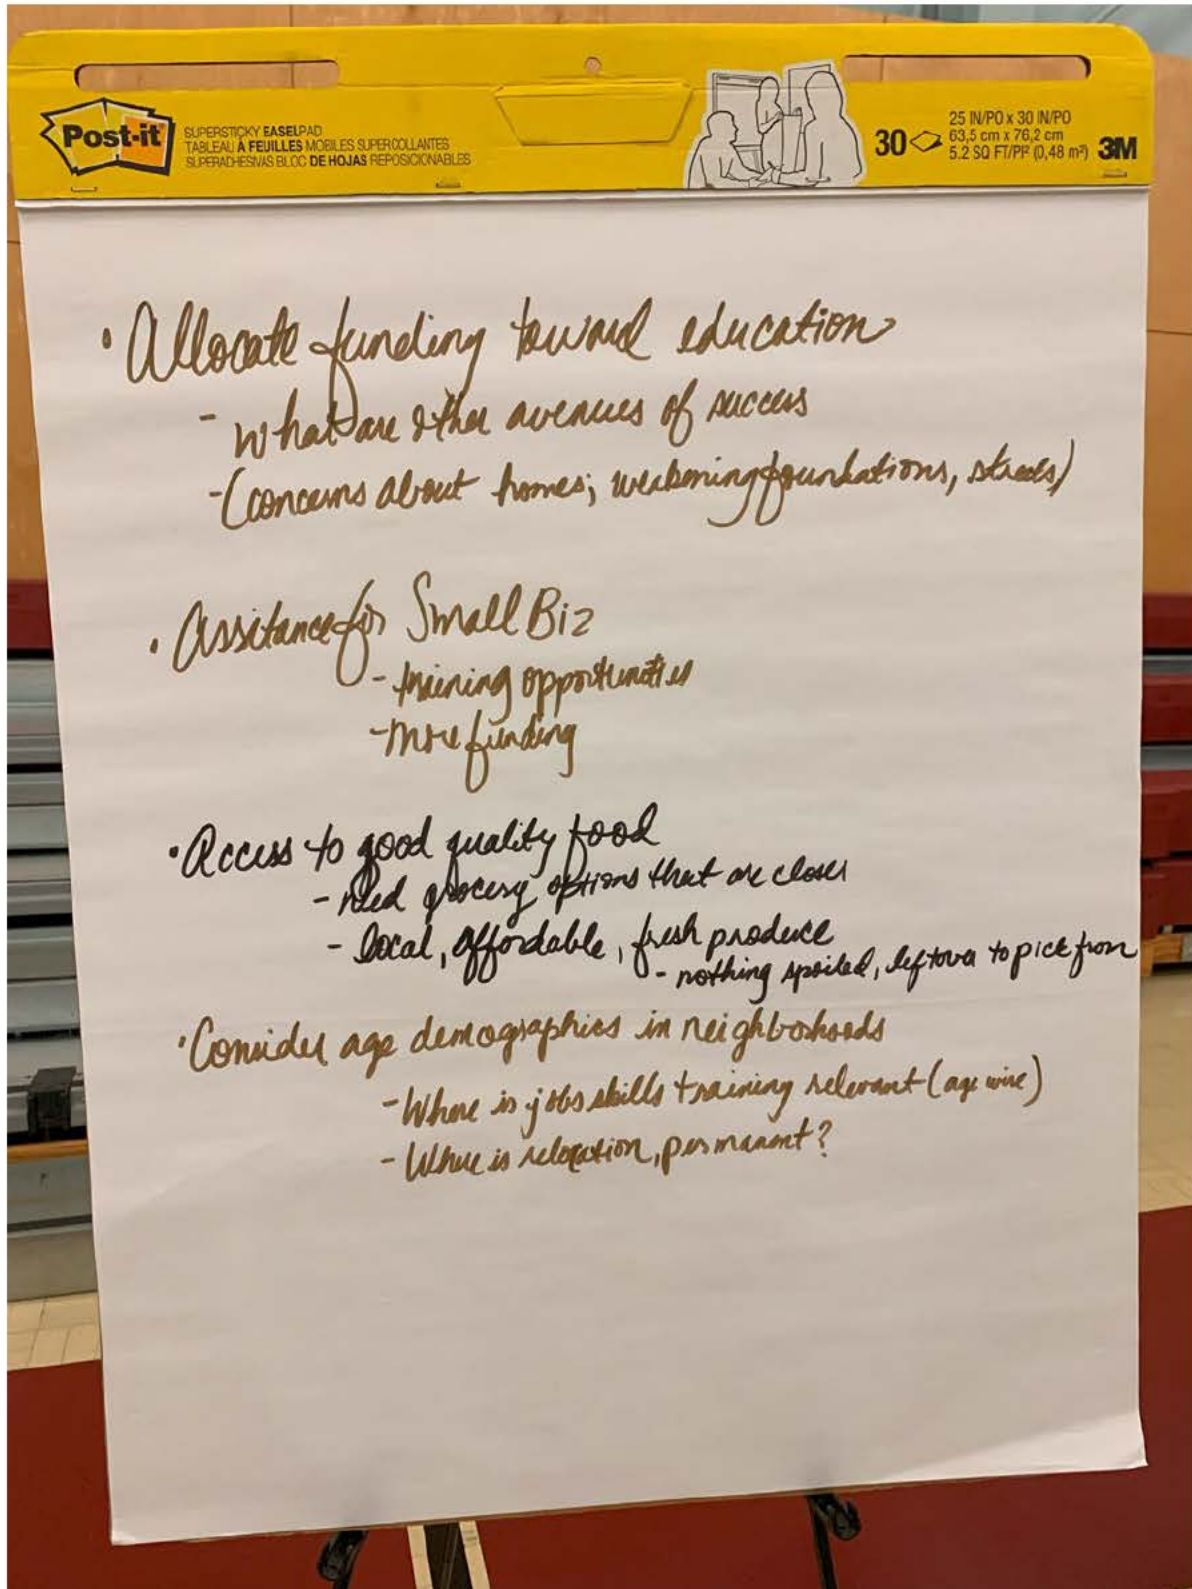 Post-it
SUPERSTICKY EASELPAD
TABLEAU À FEUILLES MOBILES SUPERCOLLANTES
SUPERADHESIVAS BLOC DE HOJAS REPOSICIONABLES
30
25 IN/PO x 30 IN/PO
63,5 cm x 76,2 cm
5.2 SQ FT/PI² (0,48 m²)
3M
• Allocate funding toward education
- what are other avenues of success
- (concerns about homes; weakening foundations, streets)
• Assitance for Small Biz
- training opportunities
- more funding
• Access to good quality food
- need grocery options that are closer
- local, affordable, fresh produce
- nothing spoiled, leftover to pick from
• Consider age demographics in neighborhoods
- Where is jobs skills training relevant (age wise)
- Where is relocation, permanent?